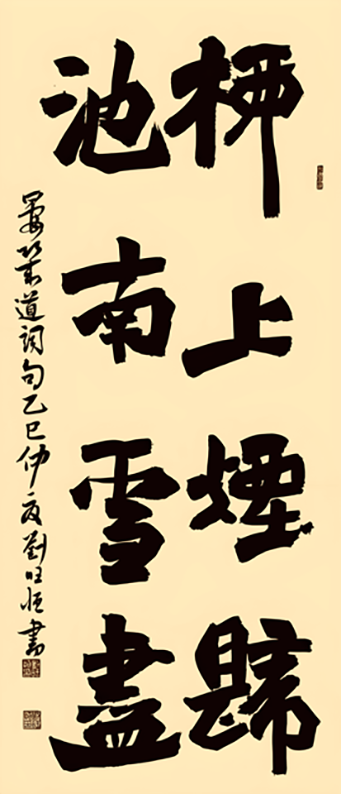 柳上煙歸
池南雪盡
晏幾道詞句乙巳仲夏劉旺恒書